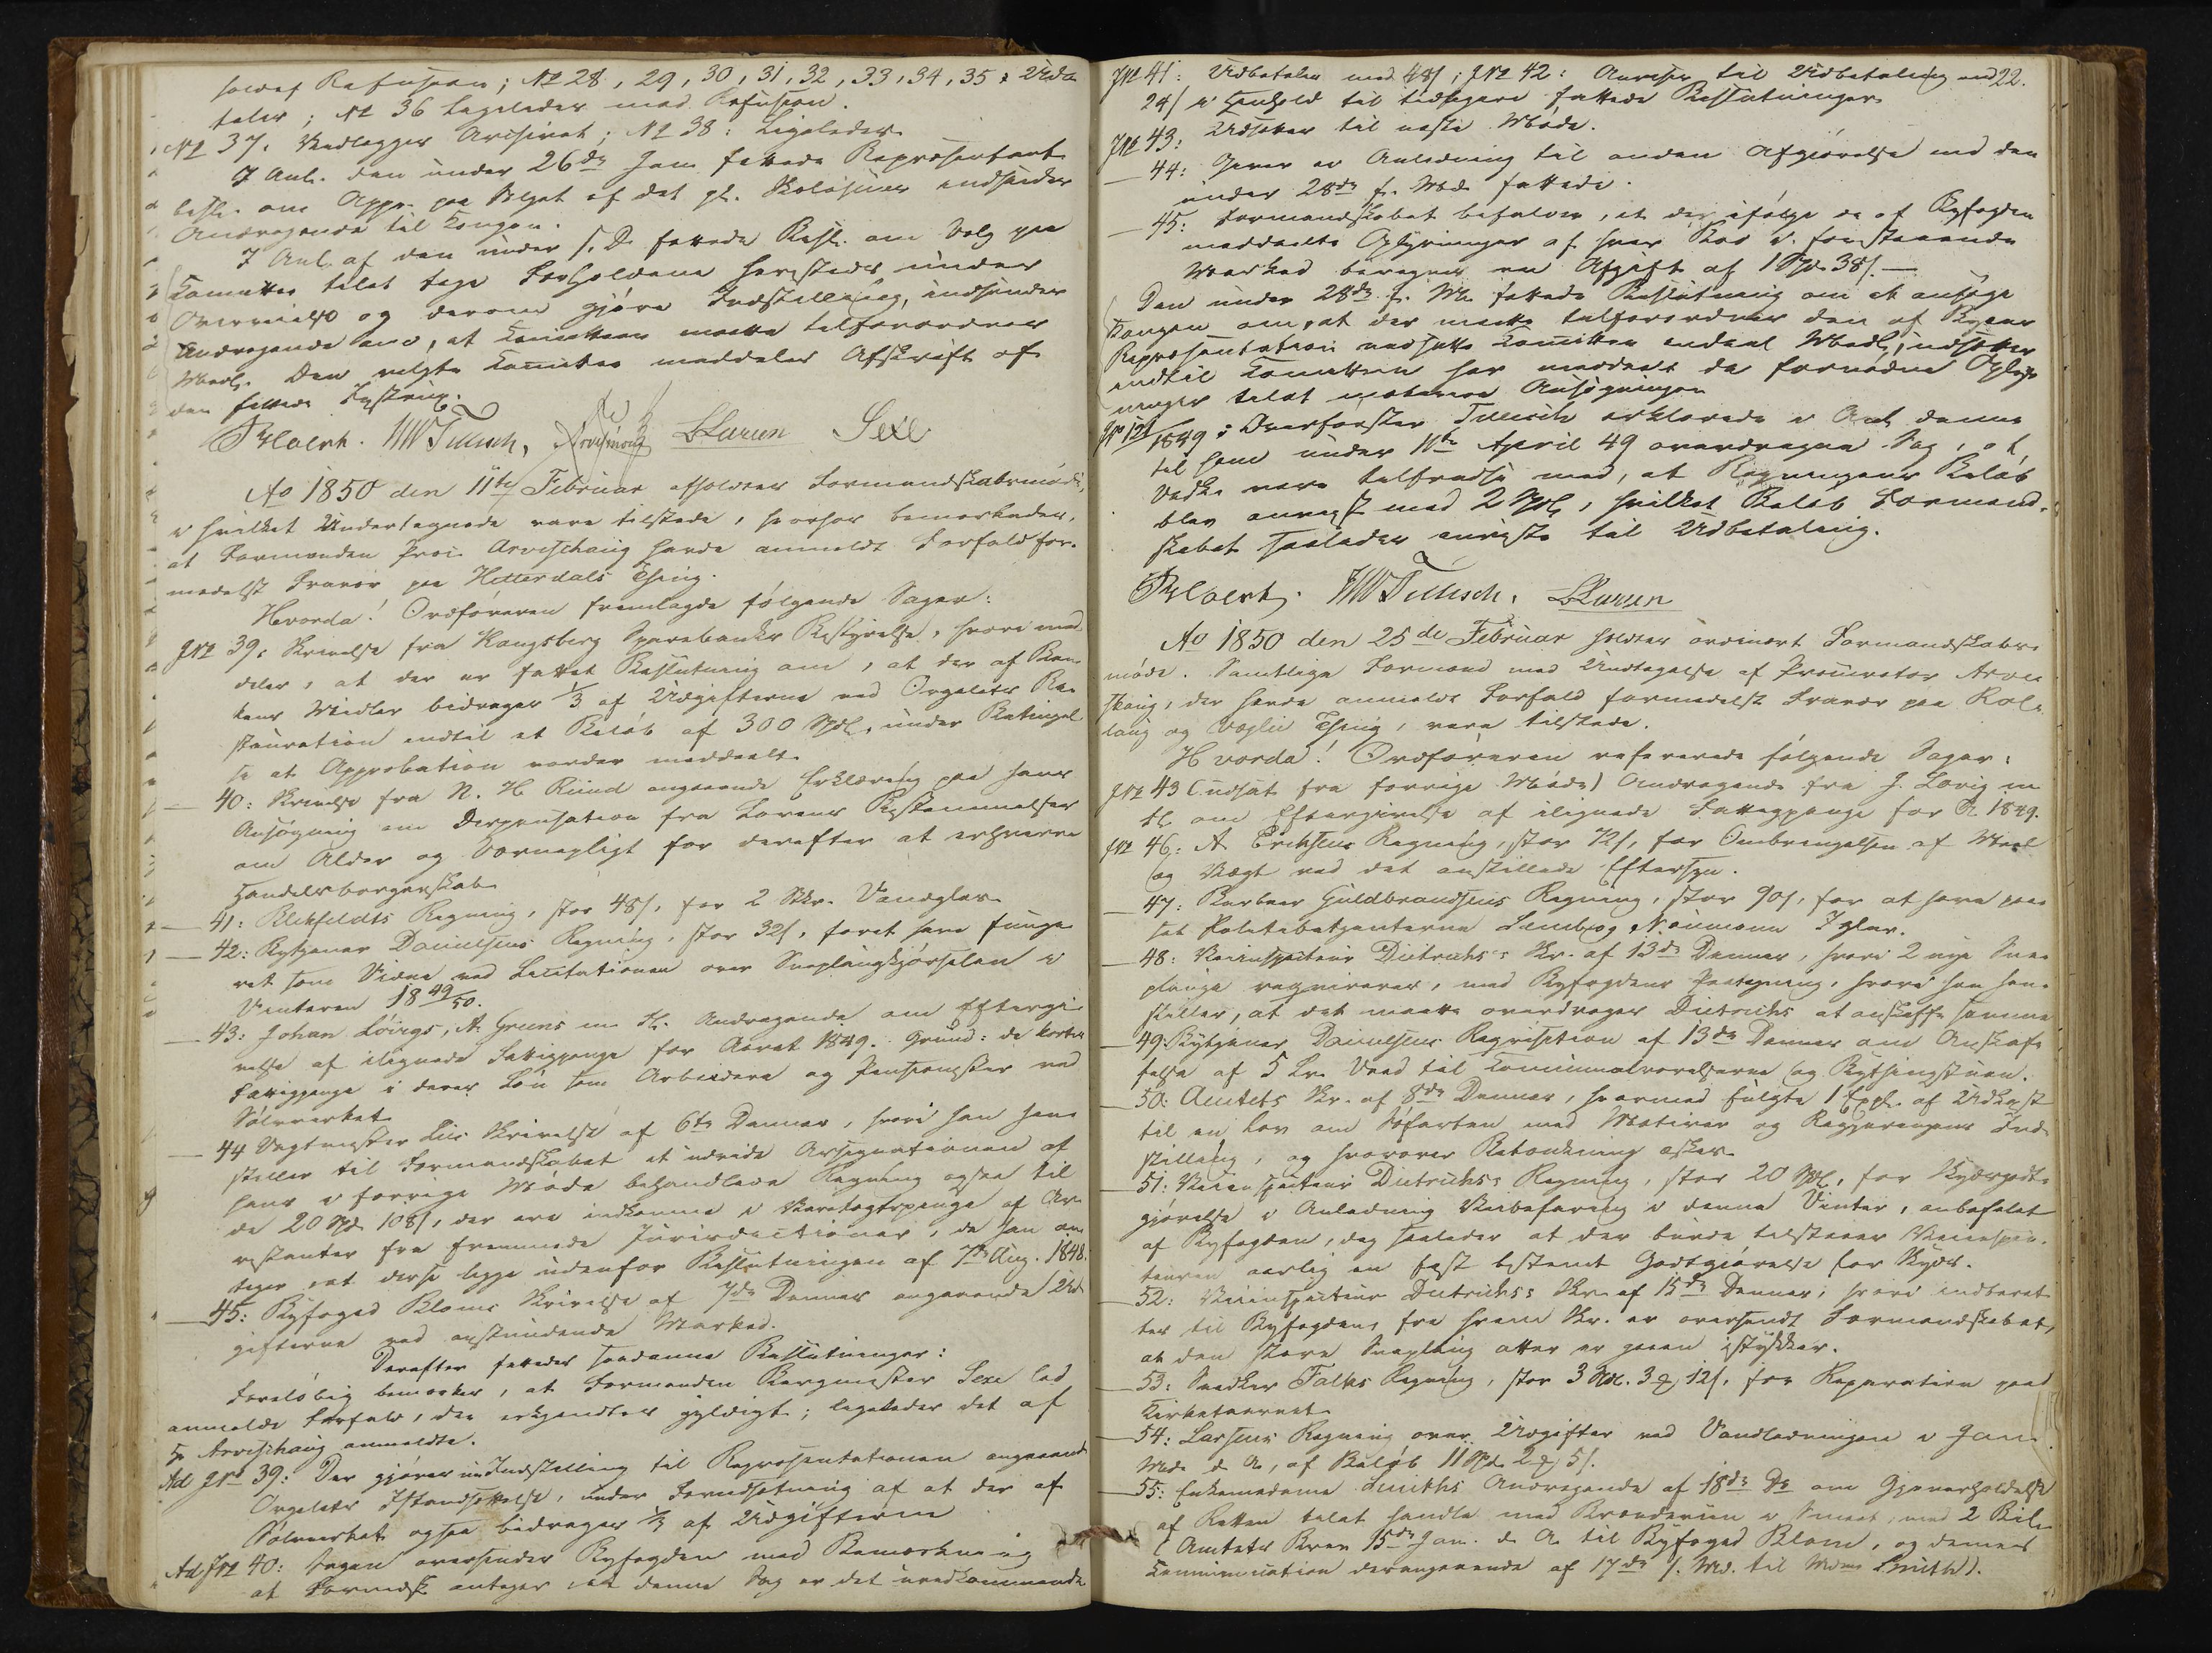 Refusion; No 28, 29, 30, 31, 32, 33, 34, 35: Udbe-
tales; No 36 ligeledes mod Refusion.
No 37. Vedlægges Archivet; No 38: Ligeledes.
I Anl. den under 26de Jan. fattede Repræsentant-
besl. om Appr. paa Salget af det gl. Skolehuus indsendes
Andragende til Kongen.
I Anl. af den under s. D. fattede Besl. om Valg paa
Comittee til at tage Forholdene hersteds under
Overveielse og derom gjøre Indstilling, indsendes
Andragende om, at Comitteen maatte tilforordnes
Medl. Den valgte Comitee meddeles Afskrift af
den fattede
Blom. JWTillisch. Arveschoug LLarsen Sexe
Ao 1850 den 11te Februar afholdtes Formandskabsmøde,
i hvilket Undertegnede vare tilstede, hvorhos bemærkedes,
at Formanden Proc. Arveschoug havde anmeldt Forfald for-
medelst Fravær paa Hitterdals Thing.
Hvorda! Ordføreren fremlagde følgende Sager:
JNo 39: Skrivelse fra Kongsberg Sparebanks Bestyrelse, hvori med-
deles, at der er fattet Beslutning om, at der af Ban-
kens Midler bidrages 1/3 af Udgifterne ved Orgelets Re-
stauration indtil et Beløb af 300 Spdl., under Betingel-
se at Approbation vorder meddeelt.
— 40: Skrivelse fra N. H. Ruud angaaende Erklæring paa hans
Ansøgning om Dispensation fra Lovens Bestemmelser
om Alder og Værnepligt for derefter at erhverve
Handelsborgerskab.
— 41: Blehfeldts Regning, stor 48s, for 2 Stkr. Vandglas.
— 42: Bytjener Danielsens Regning, stor 32s, for at have funge-
ret som Vidne ved Licitationen over Sneplougkjørselen i
Vinteren 1849/50.
— 43: Johan Løvigs, A. Gruns m. Fl. Andragende om Eftergi-
velse af ilignede Fattigpenge for Aaret 1849. Grund: de korte
Fattigpenge i deres Løn som Arbeidere og Pensionister ved
Sølvværket.
— 44 Vagtmester Lies Skrivelse af 6te Dennes, hvori han hen-
stiller til Formandskabet at udvide Assignationen af
hans i forrige Møde behandlede Regning ogsaa til
de 20 Spd. 108s, der ere indkomne i Varetægtspenge af Ar-
restanter fra fremmede Jurisdictioner, da han an-
tager, at disse ligge udenfor Beslutningen af 7de Aug. 1848.
— 45: Byfoged Bloms Skrivelse af 7de Dennes angaaende Ud-
gifterne ved anstundende Marked.
Derefter fattedes saadanne Beslutninger:
Foreløbig bemærkes, at Formanden Bergmester Sexe lod
anmelde Forfald, der erkjendtes gyldigt; ligeledes det af
Hr Arveschoug anmeldte.
Ad JNo 39: Der gjøres en Indstilling til Repræsentationen angaaende
Orgelets Istandsættelse, under Forudsætning af at der af
Sølvværket ogsaa bidrages 1/3 af Udgifterne
Ad JNo 40: Sagen oversendes Byfogden med Bemærkning
at Formdsk. antager, at denne Sag er det uvedkommende
JNo 41: Udbetales med 48s; JNo 42: Anvises til Udbetaling med 22.
24s i Henhold til tidligere fattede Beslutninger.
JNo 43: Udsættes til næste Møde.
— 44: Giver ei Anledning til anden Afgjørelse end den
under 28de f. Md. fattede.
— 45: Formandskabet befaler, at der ifølge de af Byfogden
meddeelte Oplysninger af hver Bod i forestaaende
Marked beregnes en Afgift af 1 Spd. 38s. —
Den under 28de f. M. fattede Beslutning om at ansøge
Kongen om, at der maatte tilforordnes den af Byens
Repræsentation nedsatte Comittee endeel Medl., udsættes
indtil Comitteen har meddeelt de fornødne Oplys-
ninger til at motivere Ansøgningen
JNo 121/1849: Overførster Tillisch erklærede i Anl. denne
til ham under 11te April 49 overdragne Sag, at
vedk. vare tilfreds med, at Regningens Beløb
blev anvist med 2 Spdl., hvilket Beløb Formand-
skabet saaledes anviste til Udbetaling.
Blom. JWTillisch. LLarsen
Ao 1850 den 25de Februar holdtes ordinært Formandskabs-
møde. Samtlige Formænd med Undtagelse af Procurator Arve-
schoug, der havde anmeldt Forfald formedelst Fravær paa Rol-
laug og Veglie Thing, vare tilstede.
Hvorda! Ordføreren refererede følgende Sager:
JNo 43 (udsat fra forrige Møde) Andragende fra J. Løvig m
fl. om Eftergivelse af ilignede Fattigpenge for A. 1849.
JNo 46: A. Erichsens Regning, stor 72s, for Ombringelsen af Maal
og Vægt ved det anstillede Eftersyn.
— 47: Barbeer Guldbrandsens Regning, stor 90s, for at have paa-
sat Politibetjenterne Lund og Neumann Igler.
— 48: Veiinspecteur Dietrichs's Skr. af 13de Dennes, hvori 2 nye Sne-
plouge reqvireres, med Byfogdens Paategning, hvori han hen-
stiller, at det maatte overdrages Dietrichs at anskaffe samme
— 49: Bytjener Danielsens Reqvisition af 13de Dennes om Anskaf-
felse af 5 Lv. Veed til Communalværelserne og Bythingstuen.
— 50: Amtets Skr. af 8de Dennes, hvormed fulgte 1 Expl. af Udkast
til en Lov om Søfarten med Motiver og Regjeringens Ind-
stilling, og hvorover Betænkning æskes.
— 51: Veiinspecteur Dietrichs's Regning, stor 20 Spdl., for Skydsgodt-
gjørelse i Anledning Veibefaring i denne Vinter, anbefalet
af Byfogden, dog saaledes at der burde tilstaaes Veiinspec-
teuren aarlig en fast bestemt Godtgjørelse for Skyds.
— 52: Veiinspecteur Dietrichs's Skr. af 15de Dennes, hvori indberet-
tes til Byfogden, fra hvem Skr. er oversendt Formandskabet,
at den store Sneploug atter er gaaen istykker.
— 53: Snedker Falks Regning, stor 3 Spdl. 3 ₰ 12s, for Reparation paa
Kirketaarnet.
— 54: Larsens Regning over Udgifter ved Vandledningen i Jan.
Md. d. A., af Beløb 11 Spd. 2 ₰ 5s.
— 55: Enkemadame Smiths Andragende af 18de Ds om Gjenerholdelse
af Retten til at handle med Brændeviin i Smaat, med 2 Bil-
(Amtets Brev 15de Jan. d. A. til Byfoged Blom, og dennes
Communication derangaaende af 17de s. Md. til Mdme Smith).